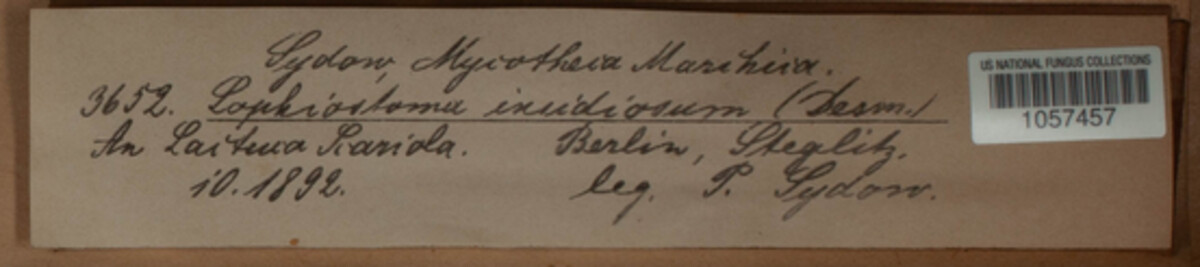 Sydow, Mycotheca Marchica.
3652. Lophiostoma insidiosum (Desm.)
An Lactuca Scariola. Berlin, Steglitz.
10.1892. leg. P. Sydow.
US NATIONAL FUNGUS COLLECTIONS
1057457